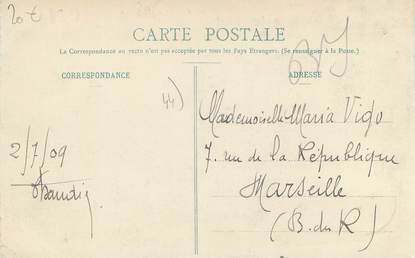 20€
CARTE POSTALE
La Correspondance au recto n'est pas acceptée par tous les Pays Etrangers. (Se renseigner à la Poste.)
CORRESPONDANCE
ADRESSE
44)
Mademoiselle Maria Vigo
7, rue de la République
Marseille
(B. du R)
2/7/09